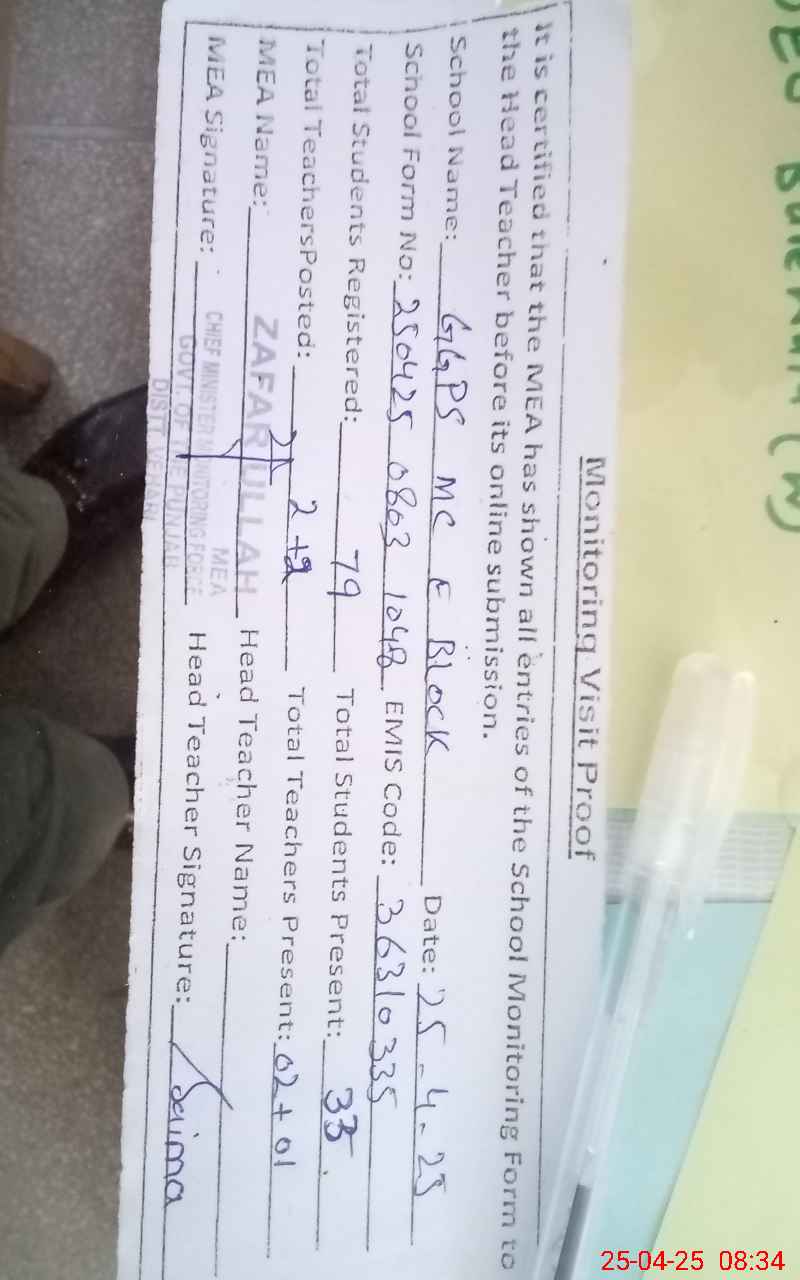 Monitoring Visit Proof
It is certified that the MEA has shown all entries of the School Monitoring Form to
the Head Teacher before its online submission.
School Name: GGPS MC E BLOCK Date: 25-4-25
School Form No: 250425 0803 1048 EMIS Code: 36310335
Total Students Registered: 79 Total Students Present: 33
Total TeachersPosted: 2+2 Total Teachers Present: 02+01
MEA Name: ZAFAR ULLAH Head Teacher Name:
MEA
MEA Signature: Head Teacher Signature: Saima
CHIEF MINISTER MONITORING FORCE
GOVT. OF THE PUNJAB
DISTT. VEHARI
25-04-25 08:34